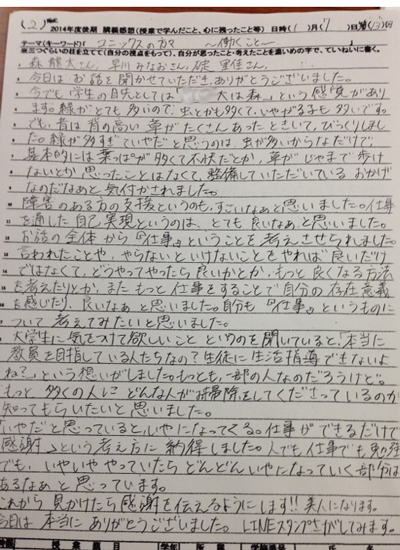 (2)
2014年度後期 講義感想(授業で学んだこと、心に残ったこと等) 日時(1)月(7)日
テーマ(キーワード) コニックスの方々 ~働くこと~
※三つぐらいの柱を立てて(自分の視点をもって)、自分が思ったこと・考えたことを濃いめの字で、ていねいに書く。
森 龍太さん、早川 みなおさん、碇 里佳さん、
今日は お話を聞かせていただき、ありがとうございました。
今でも 学生の自分としては「 大は森」という感覚があり
ます。緑がとても多いので、虫とかも多くて、いやがる子も多いです。
でも、昔は背の高い草がたくさんあったときいて、びっくりしまし
た。緑が多すぎていやだと思うのは、虫が多いからなだけで、
基本的には葉っぱが多くて不快だとか、草がじゃまで歩け
ないとか思ったことはなくて、整備していただいている おかげ
なのだなあと気付かされました。
障害のある方の支援というのも、すごいなぁと思いました。仕事
を通した自己実現というのは、とても 良いなぁと思いました。
お話の全体から『仕事』ということを考えさせられました。
言われたことや、やらないといけないことをやれば良いだけ
ではなくて、どうやってやったら良いかとか、もっと良くなる方法
を考えたりとか、また もっと仕事をすることで自分の存在意義
を感じたり、良いなぁと思いました。自分も『仕事』というものに
ついて 考えてみたいと思いました。
大学生に気をつけて欲しいこと というのを聞いていると、「本当に
教員を目指している人たちなの?生徒に生活指導できないよ
ね?」という想いがしました。もっとも、一部の人なのだろうけど。
もっと 多くの人に どんな人が お掃除をしてくださっているのか
知ってもらいたいと思いました。
いやだと思っていると、いやになってくる。仕事ができるだけで
感謝」という考え方に 納得しました。人でも仕事でも勉強
でも、いやいややっていたら どんどん いやになっていく部分は
あるなぁと思っています。
これから 見かけたら感謝を伝えるようにします!! 美人になります。
今日は 本当に ありがとうございました。 LINEスタンプさがしてみます。